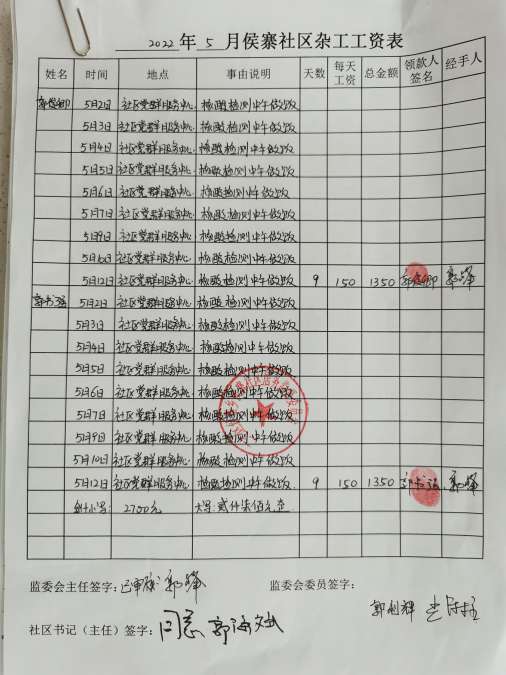 2022 年 5 月侯寨社区杂工工资表
姓名 时间 地点 事由说明 天数 每天工资 总金额 领款人签名 经手人
5月2日 社区党群服务中心 核酸检测中午做饭
5月3日 社区党群服务中心 核酸检测中午做饭
5月4日 社区党群服务中心 核酸检测中午做饭
5月5日 社区党群服务中心 核酸检测中午做饭
5月6日 社区党群服务中心 核酸检测中午做饭
5月7日 社区党群服务中心 核酸检测中午做饭
5月9日 社区党群服务中心 核酸检测中午做饭
社区党群服务中心 核酸检测中午做饭
5月12日 社区党群服务中心 核酸检测中午做饭 9 150 1350
5月2日 社区党群服务中心 核酸检测中午做饭
5月3日 社区党群服务中心 核酸检测中午做饭
5月4日 社区党群服务中心 核酸检测中午做饭
5月5日 社区党群服务中心 核酸检测中午做饭
5月6日 社区党群服务中心 核酸检测中午做饭
5月7日 社区党群服务中心 核酸检测中午做饭
5月9日 社区党群服务中心 核酸检测中午做饭
5月10日 社区党群服务中心 核酸检测中午做饭
5月12日 社区党群服务中心 核酸检测中午做饭 9 150 1350
2700元 大写:贰仟柒佰元整
监委会主任签字: 监委会委员签字:
社区书记(主任)签字:同意